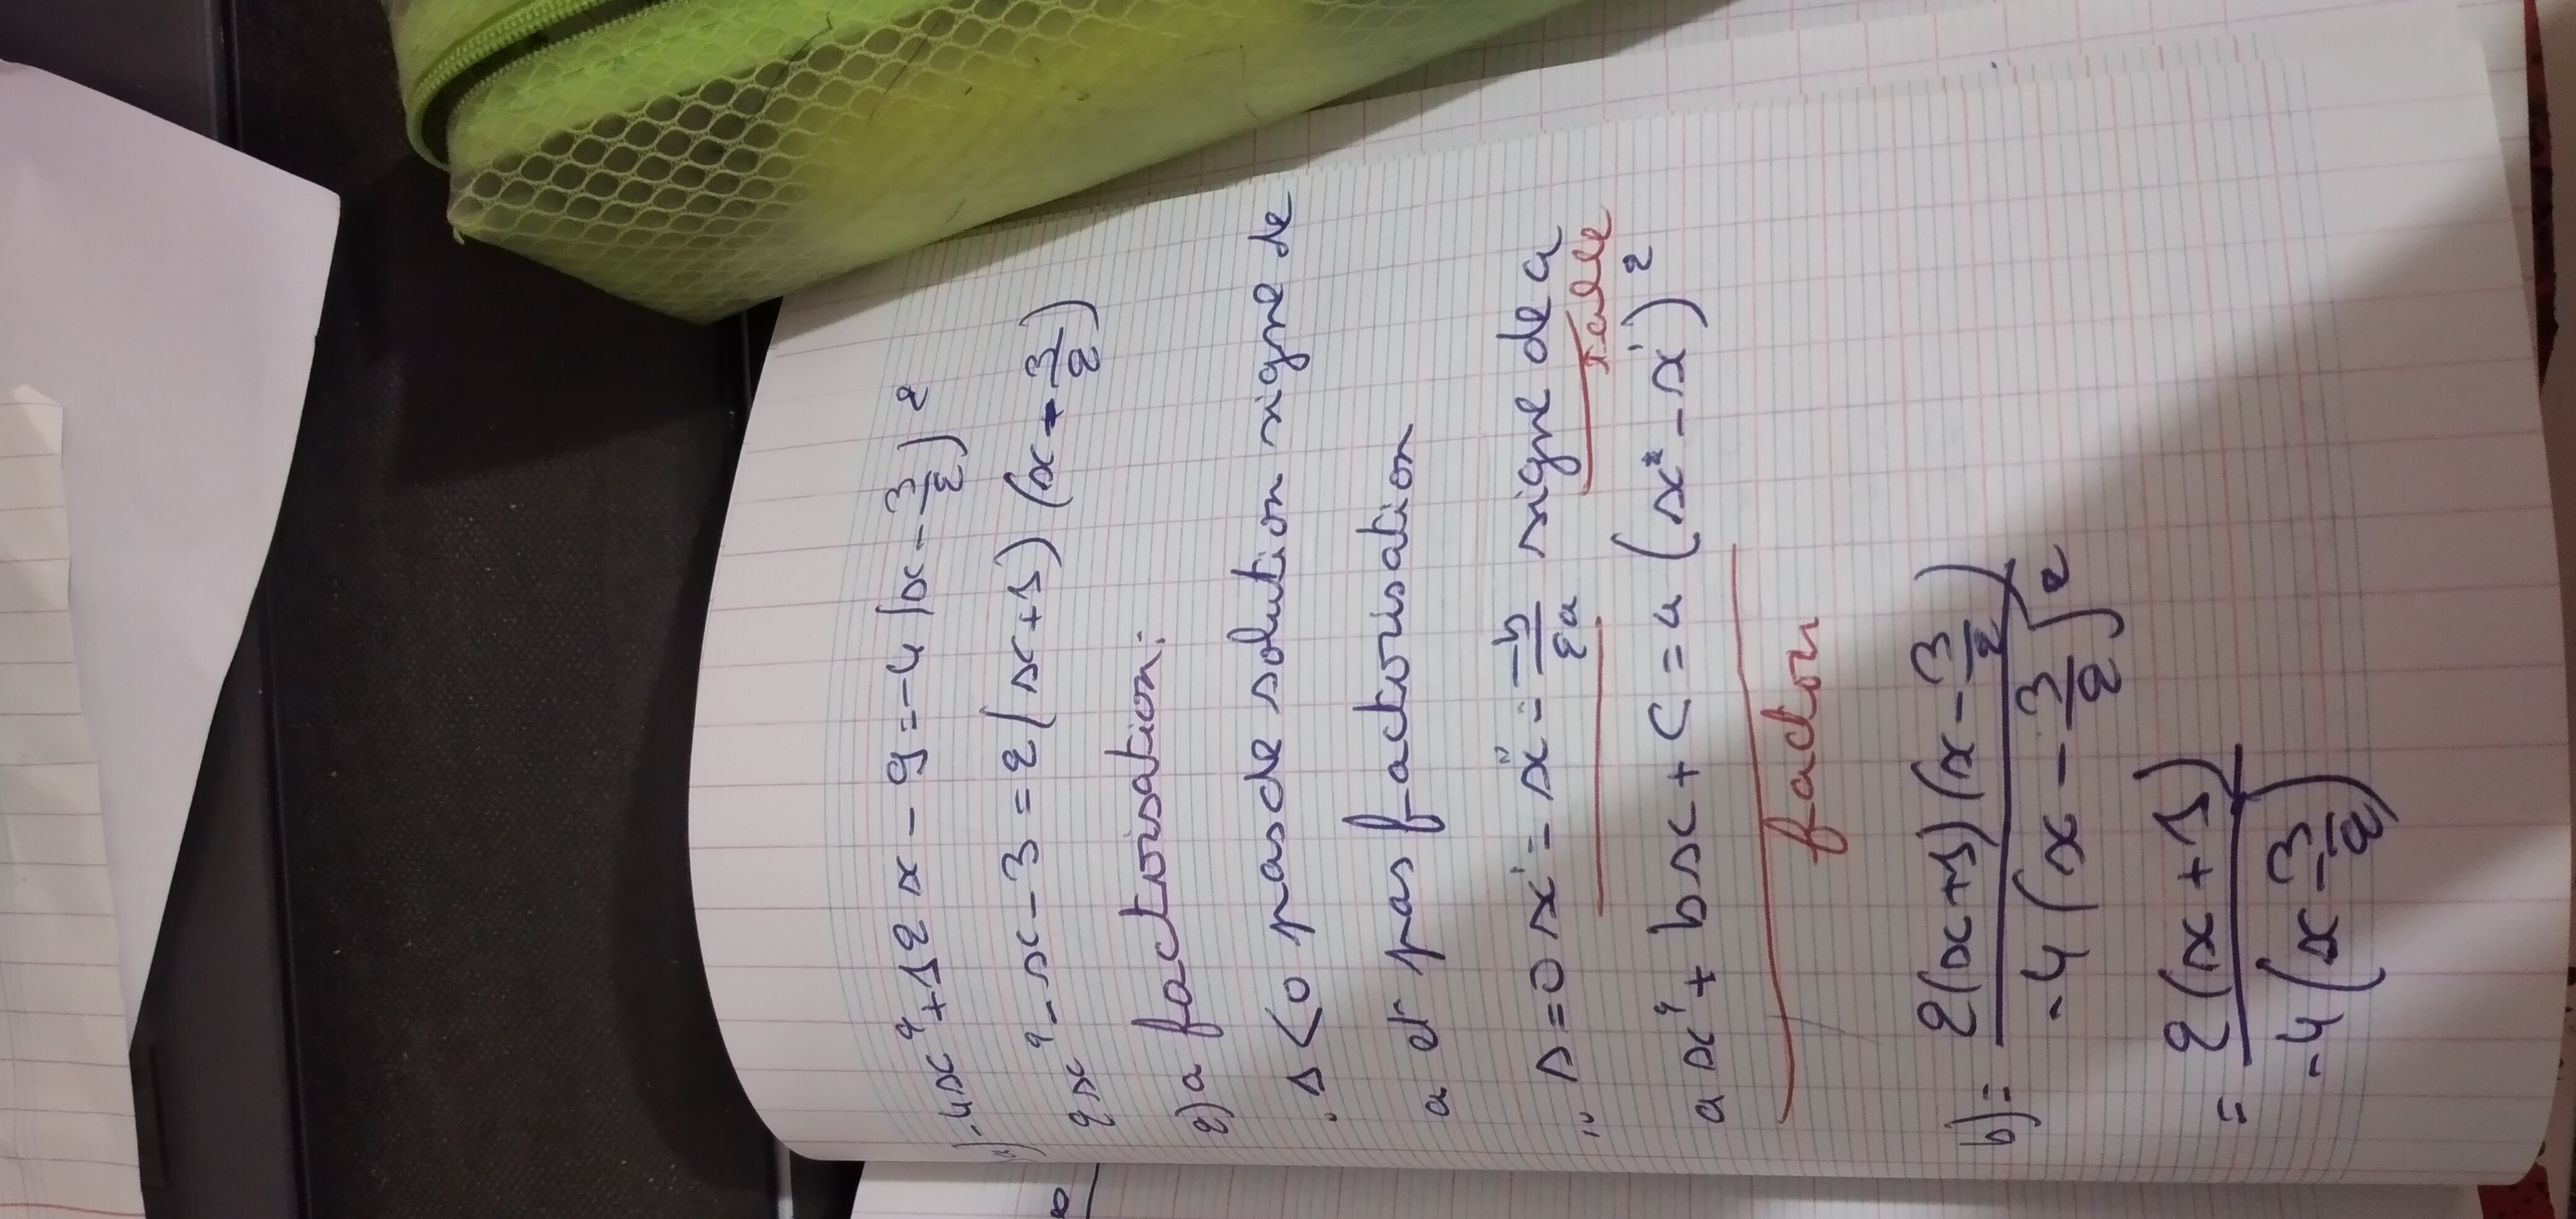 a) -4x²+12x-9=-4(x-3/2)²
2x²-x-3=2(x+1)(x-3/2)
2) a factorisation:
. Δ<0 pas de solution signe de
a et pas factorisation
" Δ=0 x'=x"=-b/2a signe de a
Table
ax²+bx+c=a(x-x')²
faction
b)= 2(x+1)(x-3/2) / -4(x-3/2)²
= 2(x+1) / -4(x-3/2)